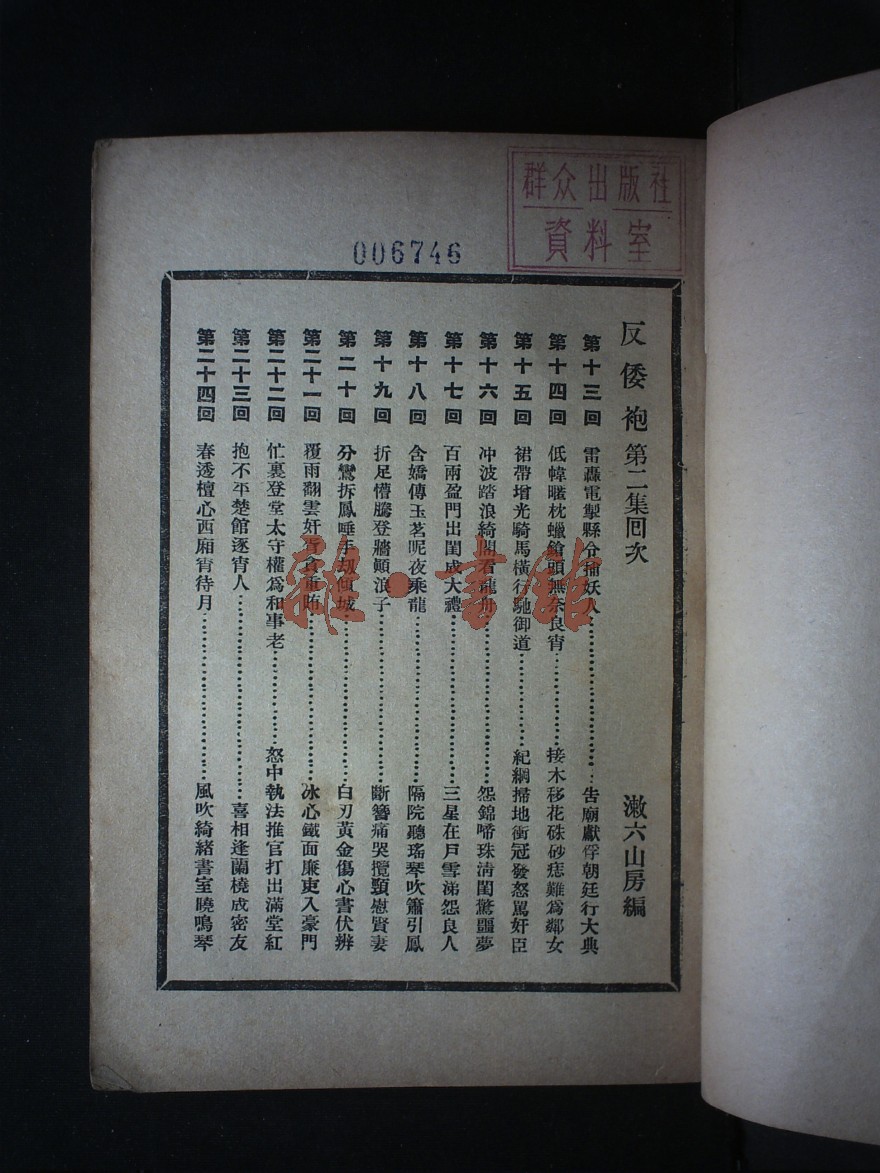 群众出版社
資料室
006746
反倭袍第二集囘次
漱六山房編
第十三回 雷轟電掣縣分捕妖人 告廟獻俘朝廷行大典
第十四回 低幃暱枕蠟鎗頭無奈良宵 接木移花硃砂痣難爲鄰女
第十五回 裙帶增光騎馬橫行馳御道 紀綱掃地衝冠發怒罵奸臣
第十六回 冲波踏浪綺閣看龍舟 怨錦啼珠淸閨驚噩夢
第十七回 百兩盈門出閨成大禮 三星在戶雪涕怨良人
第十八回 含嬌傳玉茗昵夜乘龍 隔院聽瑤琴吹簫引鳳
第十九回 折足懵騰登牆顚浪子 斷簪痛哭攬頸慰賢妻
第二十回 分鸞拆鳳唾手刧傾城 白刃黃金傷心書伏辨
第二十一回 覆雨翻雲奸胥貪重賄 冰心鐵面廉吏入豪門
第二十二回 忙裏登堂太守權爲和事老 怒中執法推官打出滿堂紅
第二十三回 抱不平楚館逐宵人 喜相逢蘭橈成密友
第二十四回 春透檀心西廂宵待月 風吹綺緒書室曉鳴琴
雜·書館